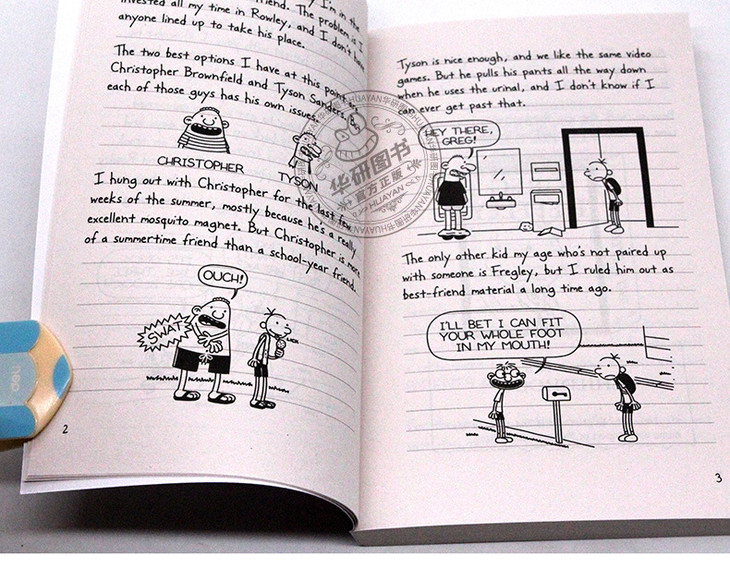 I'm in the
friend. The problem is I
invested all my time in Rowley, and I don't have
anyone lined up to take his place.
The two best options I have at this point are
Christopher Brownfield and Tyson Sanders. But
each of those guys has his own issues.
CHRISTOPHER
TYSON
I hung out with Christopher for the last few
weeks of the summer, mostly because he's a really
excellent mosquito magnet. But Christopher is more
of a summertime friend than a school-year friend.
OUCH!
SWAT!
2
Tyson is nice enough, and we like the same video
games. But he pulls his pants all the way down
when he uses the urinal, and I don't know if I
can ever get past that.
HEY THERE,
GREG!
The only other kid my age who's not paired up
with someone is Fregley, but I ruled him out as
best-friend material a long time ago.
I'LL BET I CAN FIT
YOUR WHOLE FOOT
IN MY MOUTH!
3
华研图书
官方正版
HUAYAN
deli